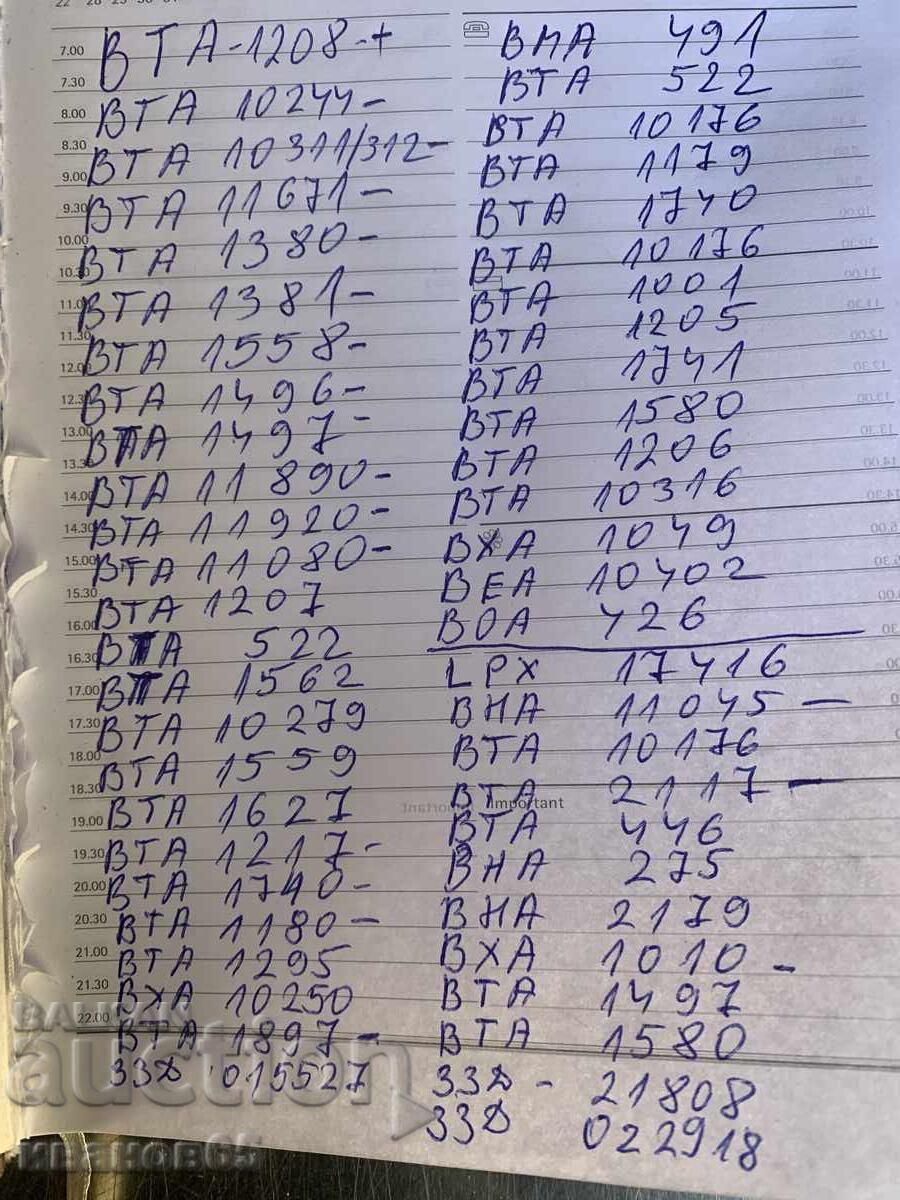 7.00
7.30
8.00
8.30
9.00
9.30
10.00
10.30
11.00
11.30
12.00
12.30
13.00
13.30
14.00
14.30
15.00
15.30
16.00
16.30
17.00
17.30
18.00
18.30
19.00
19.30
20.00
20.30
21.00
21.30
22.00
ВТА-1208-+
ВТА 10244-
ВТА 10311/312-
ВТА 11671-
ВТА 1380-
ВТА 1381-
ВТА 1558-
ВТА 1496-
ВТА 1497-
ВТА 11890-
ВТА 11920-
ВТА 11080-
ВТА 1207
ВТА 522
ВТА 1562
ВТА 10279
ВТА 1559
ВТА 1627
ВТА 1217-
ВТА 1740-
ВТА 1180-
ВТА 1295
ВХА 10250
ВТА 1897-
33D 015527
ВНА 491
ВТА 522
ВТА 10176
ВТА 1179
ВТА 1740
ВТА 10176
ВТА 1001
ВТА 1205
ВТА 1741
ВТА 1580
ВТА 1206
ВТА 10316
ВХА 1049
ВЕА 10402
ВОА 426
LPX 17416
ВНА 11045-
ВТА 10176
ВТА 2117-
Important
ВТА 446
ВНА 275
ВНА 2179
ВХА 1010-
ВТА 1497
ВТА 1580
33D - 21808
33D 022918
auction
иванов65